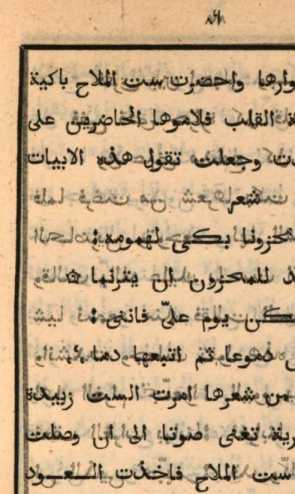 ٨٦
وارها واحضرت ست الملاح باكية
ة القلب فلاموها الحاضرين على
ت وجعلت تقول هذه الابيات
شعر
محزونا بكى لهمومه
د للمحزون ان
يوم علىّ فاننى
دموعا ثم اتبعها دما
من شعرها امرت الست زبيدة
رية تغنى صوتا الى ان وصلت
ست الملاح فاخذت العود